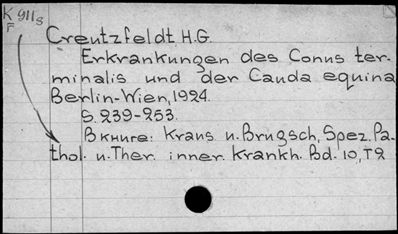 K 911s
F
Creutzfeldt H.G.
Erkrankungen des Conus ter-
minalis und der Cauda equina
Berlin-Wien, 1924.
S. 239-253.
В книге: Kraus u. Brugsch, Spez. Pa-
thol. u. Ther. inner. Krankh. Bd. 10, T2